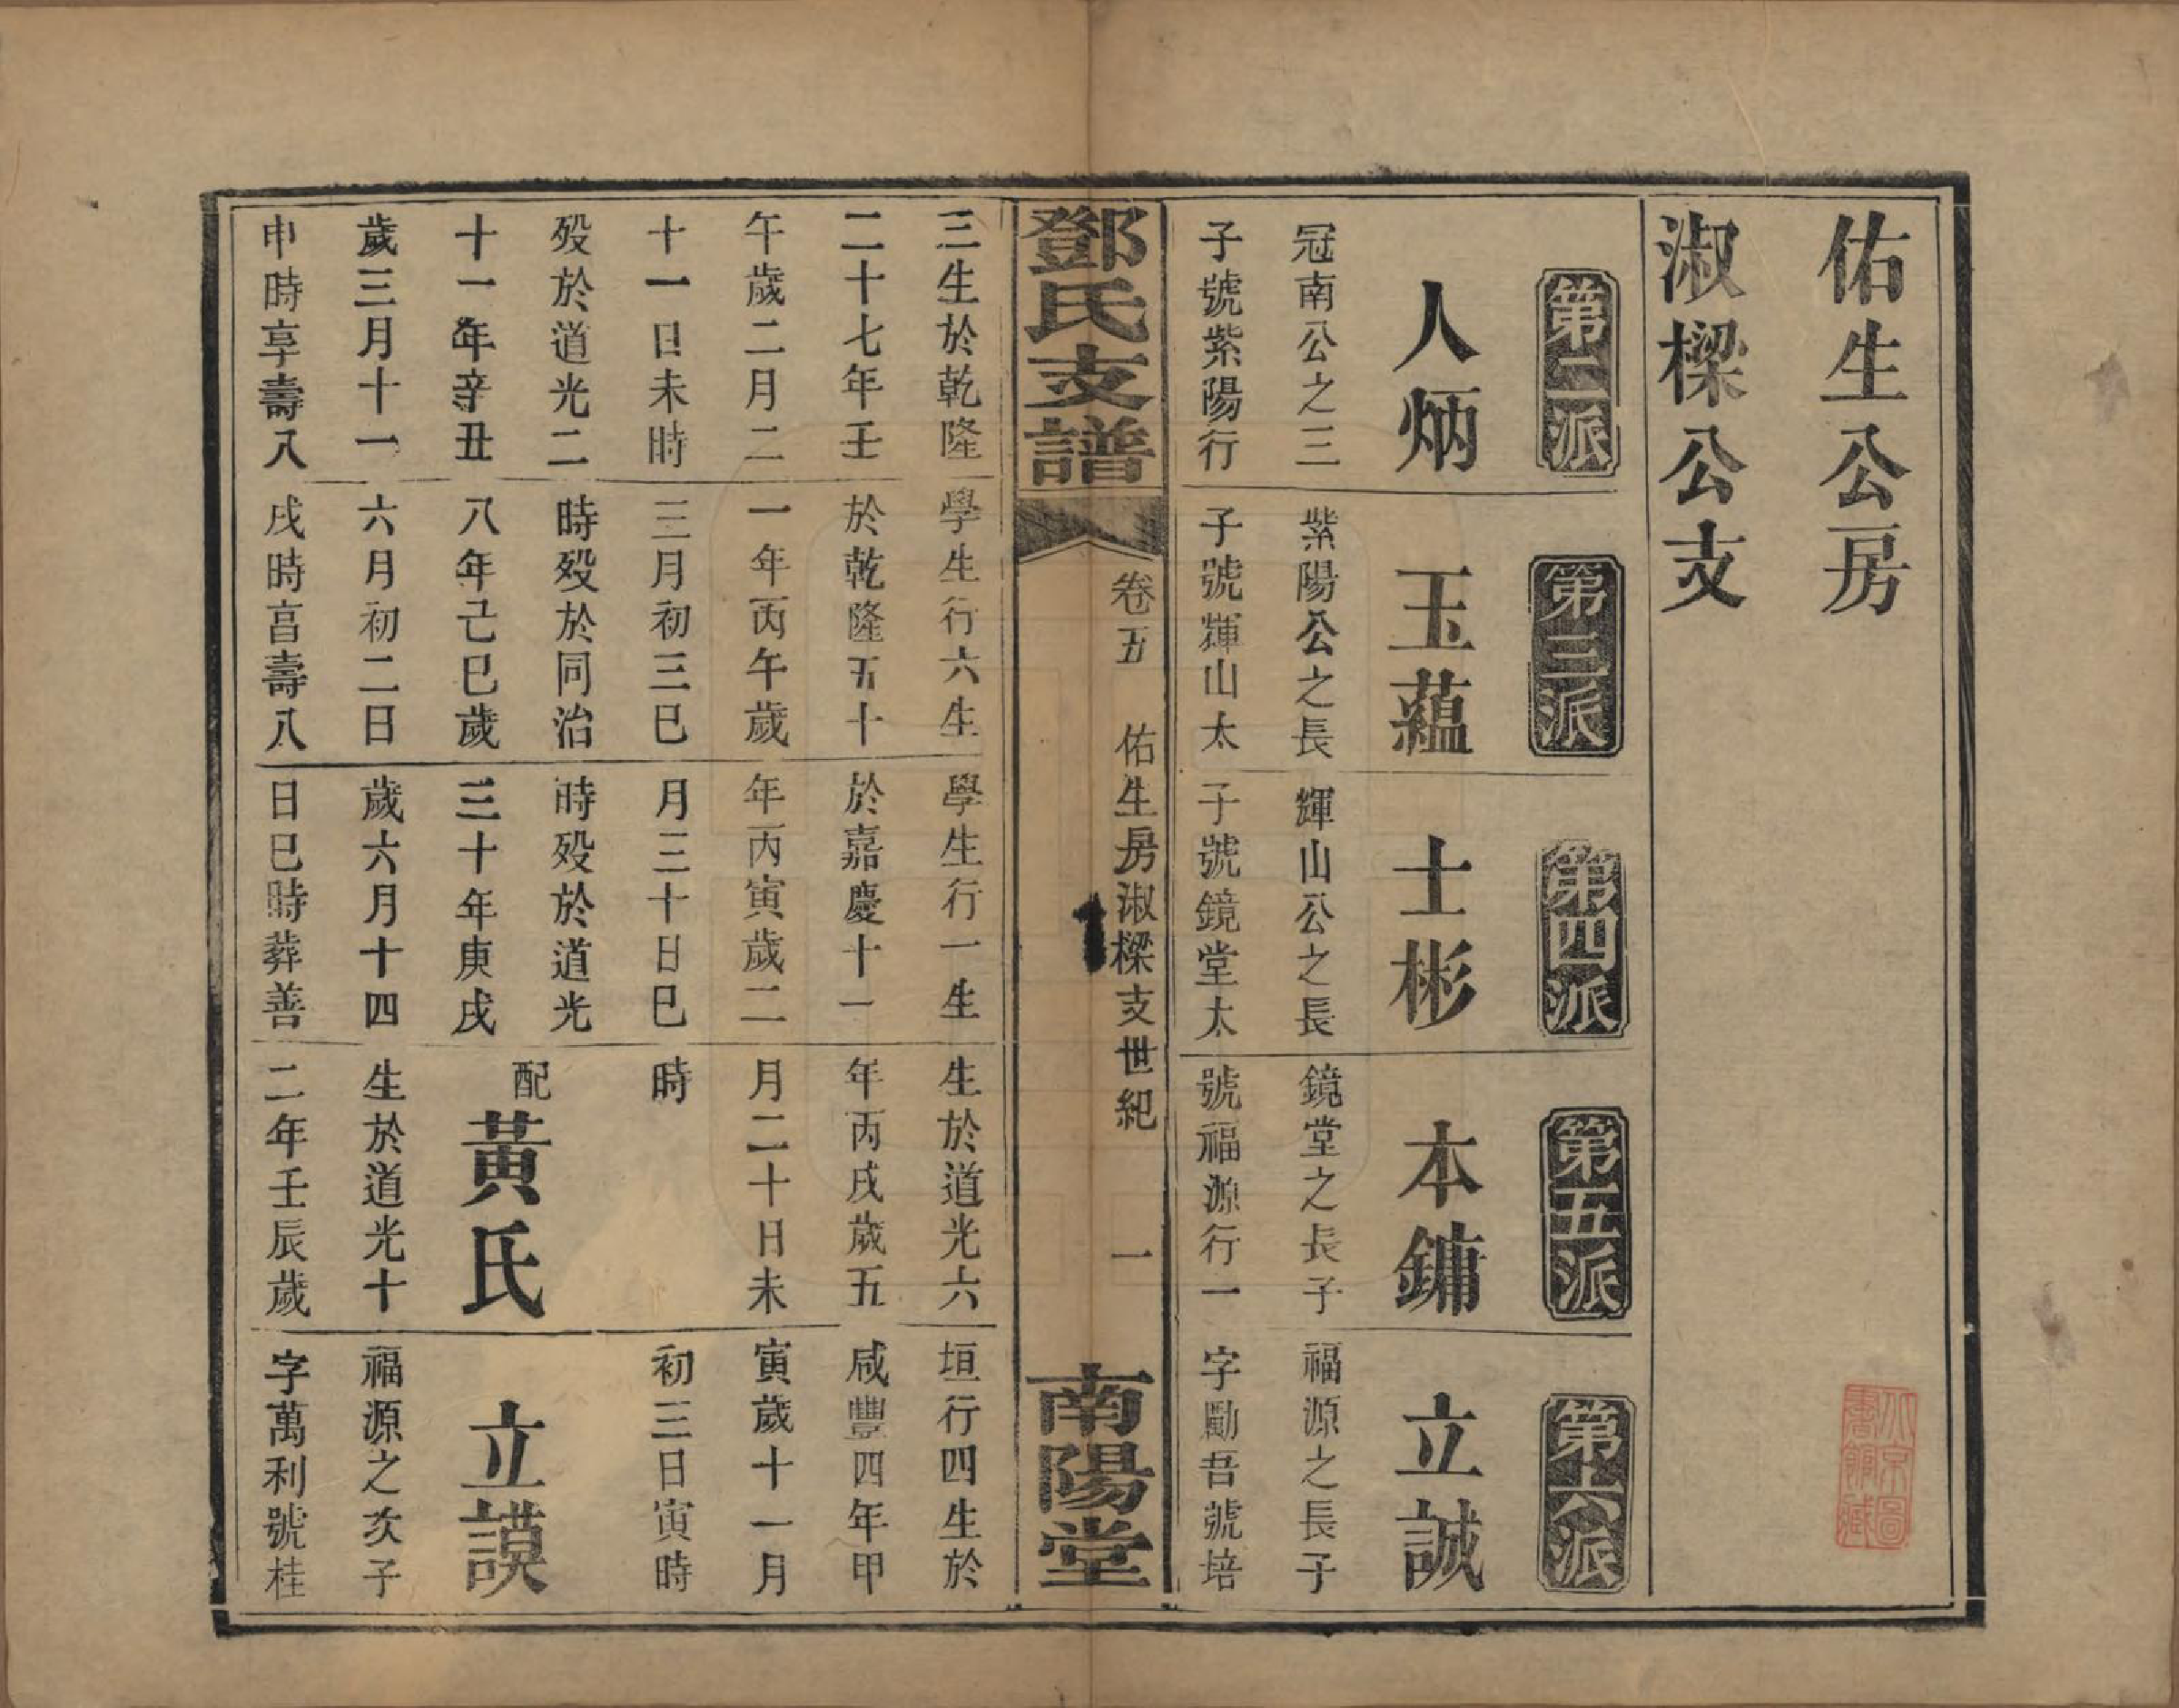 佑生公房
淑樑公支
北京圖
書館藏
第二派
人炳
冠南公之三
子號紫陽行
三生於乾隆
二十七年壬
午歲二月二
十一日未時
殁於道光二
十一年辛丑
歲三月十一
申時享壽八
第三派
玉蘊
紫陽公之長
子號輝山太
學生行六生
於乾隆五十
一年丙午歲
三月初三巳
時殁於同治
八年己巳歲
六月初二日
戌時亯壽八
第四派
士彬
輝山公之長
子號鏡堂太
學生行一生
於嘉慶十一
年丙寅歲二
月三十日巳
時殁於道光
三十年庚戌
歲六月十四
日巳時葬善
第五派
本鏞
鏡堂之長子
號福源行一
生於道光六
年丙戌歲五
月二十日未
時
配黃氏
生於道光十
二年壬辰歲
第六派
立誠
福源之長子
字勵吾號培
垣行四生於
咸豐四年甲
寅歲十一月
初三日寅時
立謨
福源之次子
字萬利號桂
鄧氏支譜
卷五 佑生房淑樑支世紀 一
南陽堂